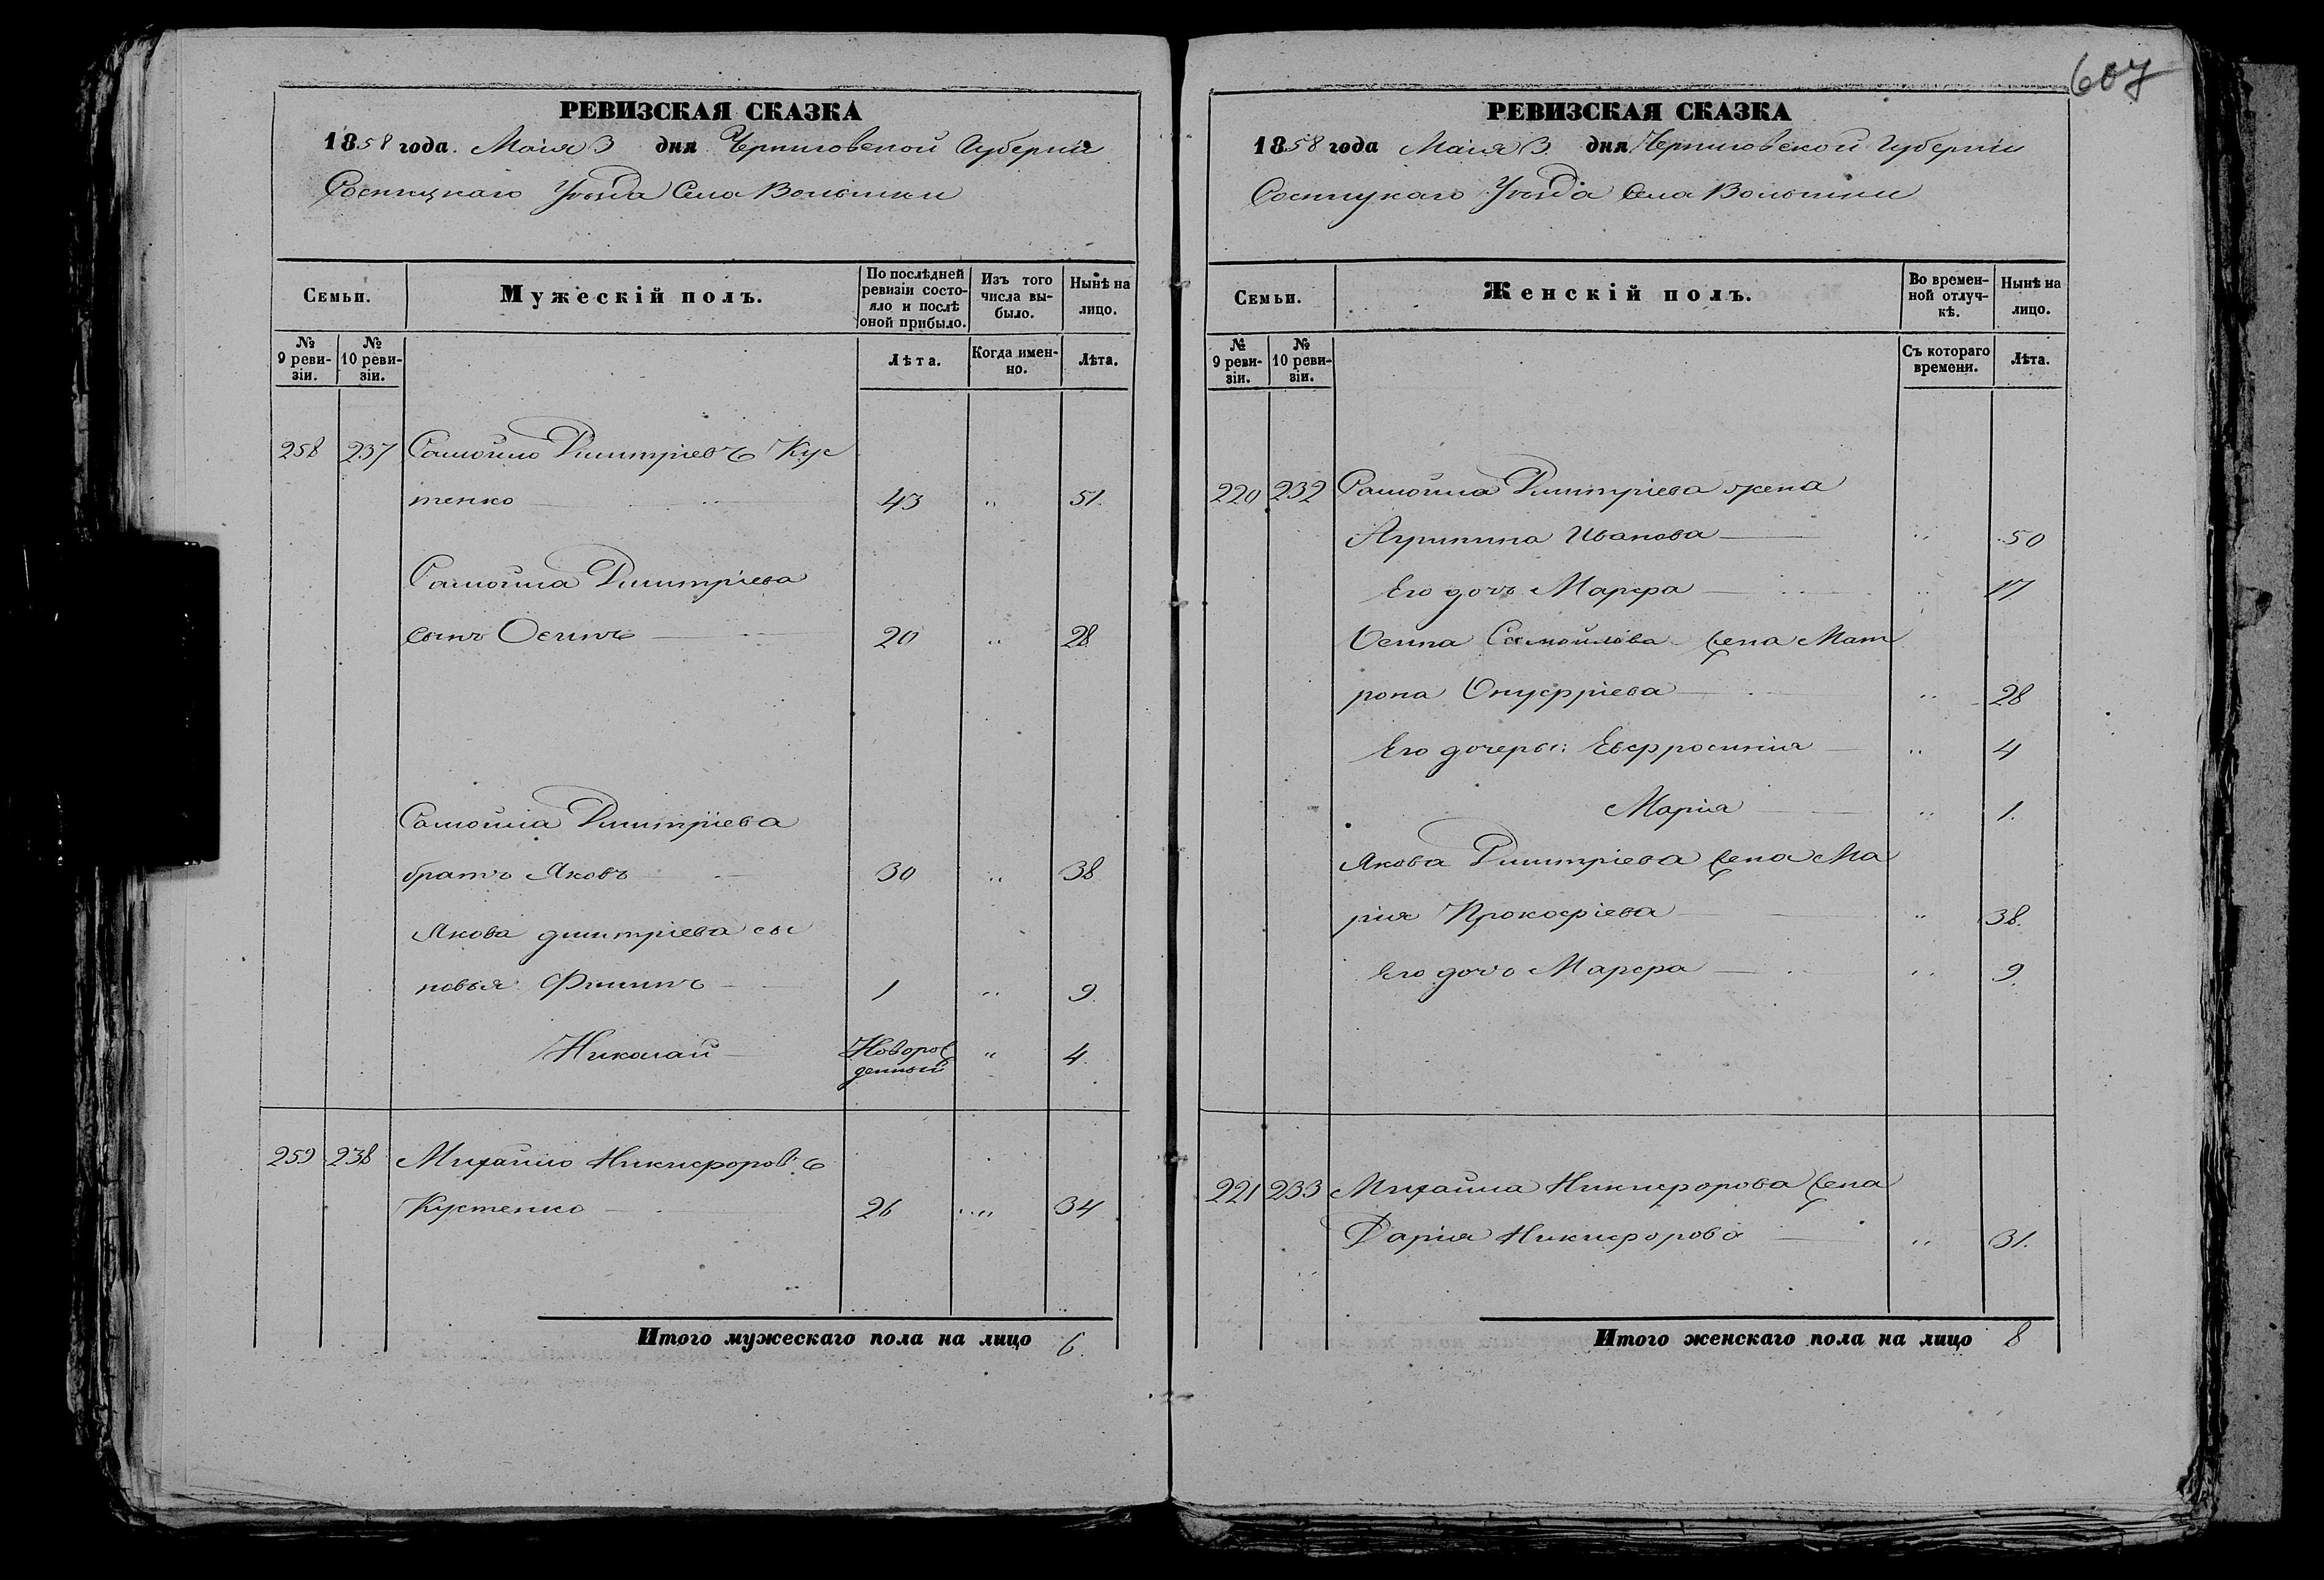 607
РЕВИЗСКАЯ СКАЗКА
1858 года. Маія 3 дня Черниговской Губерніи
Сосницкаго Уѣзда Села Волынки
Семьи.
Мужескій полъ.
По послѣдней ревизіи состояло и послѣ оной прибыло.
Изъ того числа выбыло.
Нынѣ на лицо.
№ 9 ревизіи.
№ 10 ревизіи.
Лѣта.
Когда именно.
Лѣта.
258 237 Самойло Димитріевъ Кус
тенко 43 " 51.
Самойла Димитріева
сынъ Осипъ 20 " 28
Самойла Димитріева
братъ Яковъ 30 " 38
Якова димитріева сы
новья Филипъ 1 " 9.
Николай Новорож
денный " 4.
259 238 Михайло Никифоровъ
Кустенко 26 " 34
Итого мужескаго пола на лицо 6.
РЕВИЗСКАЯ СКАЗКА
1858 года Маія 3. дня Черниговской Губерніи
Сосницкаго Уѣзда Села Волынки
Семьи.
Женскій полъ.
Во временной отлучкѣ.
Нынѣ на лицо.
№ 9 ревизіи.
№ 10 ревизіи.
Съ котораго времени.
Лѣта.
220 232 Самойла Димитріева жена
Агрипина Иванова " 50
Его дочь Марфа " 17
Осипа Самойлова жена Мат
рона Онуфріева " 28
Его дочеры: Евфросинія " 4
Марія " 1.
Якова Димитріева жена Ма
рия Прокофіева " 38.
Его дочь Марфа " 9.
221 233 Михайла Никифорова жена
Дарія Никифорова " 31.
Итого женскаго пола на лицо 8